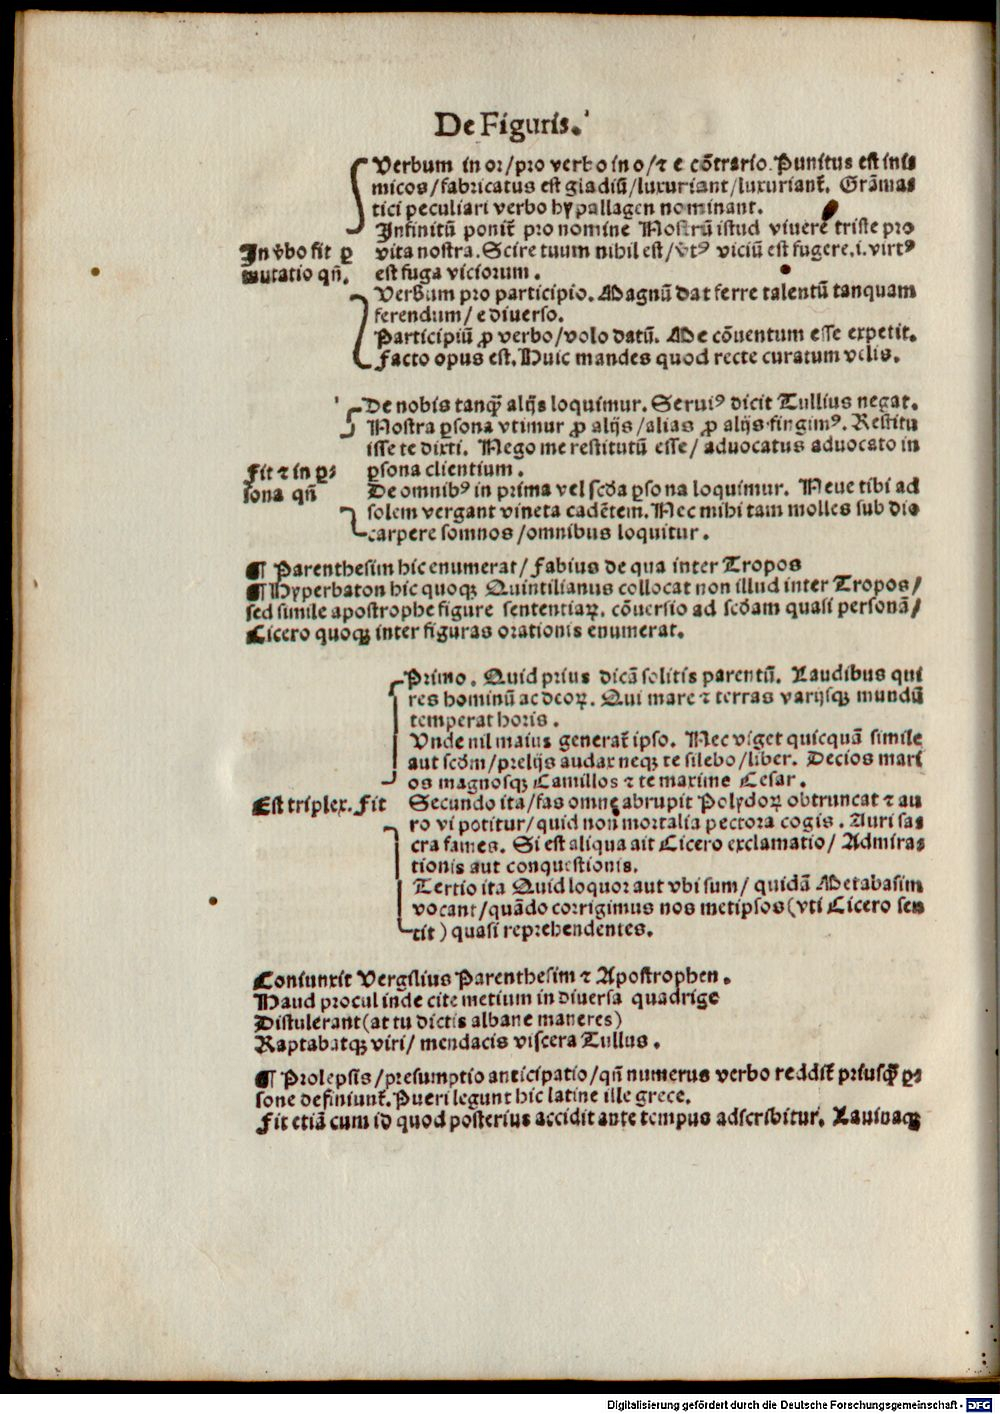 De Figuris.
Verbum in or/pro verbo in o/⁊ e cōtrario. Punitus est inis
micos/fabricatus est gladiū/luxuriant/luxuriant̄. Grāmas
tici peculiari verbo hypallagen nominant.
Infinitū ponit̄ pro nomine Nostrū istud viuere triste pro
In v̄bo fit ꝑ
mutatio qn̄.
vita nostra. Scire tuum nihil est/vtꝰ viciū est fugere.i.virtꝰ
est fuga viciorum.
Verbum pro participio. Magnū dat ferre talentū tanquam
ferendum/e diuerso.
Participiū ꝓ verbo/volo datū. Me cōuentum esse expetit.
Facto opus est. Huic mandes quod recte curatum velis.
De nobis tanꝙ̄ alijs loquimur. Seruiꝰ dicit Tullius negat.
Nostra ꝑsona vtimur ꝓ alijs/alias ꝓ alijs fingimꝰ. Restitu
isse te dixti. Nego me restitutū esse/aduocatus aduocato in
Fit ⁊ in ꝑ-
sona qn̄
ꝑsona clientium.
De omnibꝰ in prima vel scd̄a ꝑsona loquimur. Neue tibi ad
solem vergant vineta cadētem. Nec mihi tam molles sub dio
carpere somnos/omnibus loquitur.
¶ Parenthesim hic enumerat/Fabius de qua inter Tropos
¶ Hyperbaton hic quoqꝫ Quintilianus collocat non illud inter Tropos/
sed simile apostrophe figure sententiaꝝ. cōuersio ad scd̄am quasi personā/
Cicero quoqꝫ inter figuras orationis enumerat.
Primo. Quid prius dicā solitis parentū. Laudibus qui
res hominū ac deoꝝ. Qui mare ⁊ terras varijsqꝫ mundū
temperat horis.
Vnde nil maius generat̄ ipso. Nec viget quicquā simile
aut scd̄m/prelijs audax neqꝫ te silebo/liber. Decios mari
os magnosqꝫ Camillos ⁊ te maxime Cesar.
Est triplex. Fit
Secundo ita/fas omne abrupit Polydoꝝ obtruncat ⁊ au
ro vi potitur/quid non mortalia pectora cogis. Auri sas
cra fames. Si est aliqua ait Cicero exclamatio/Admiras
tionis aut conquestionis.
Tertio ita Quid loquor aut vbi sum/quidā Metabasim
vocant/quādo corrigimus nos metipsos(vti Cicero sen
tit) quasi reprehendentes.
Coniunxit Vergilius Parenthesim ⁊ Apostrophen.
Haud procul inde cite metium in diuersa quadrige
Distulerant(at tu dictis albane maneres)
Raptabatqꝫ viri/mendacis viscera Tullus.
¶ Prolepsis/presumptio anticipatio/qn̄ numerus verbo reddit̄ priusꝙ̄ ꝑ-
sone definiunt̄. Pueri legunt hic latine ille grece.
Fit etiā cum id quod posterius accidit ante tempus adscribitur. Lauinaqꝫ
Digitalisierung gefördert durch die Deutsche Forschungsgemeinschaft - DFG